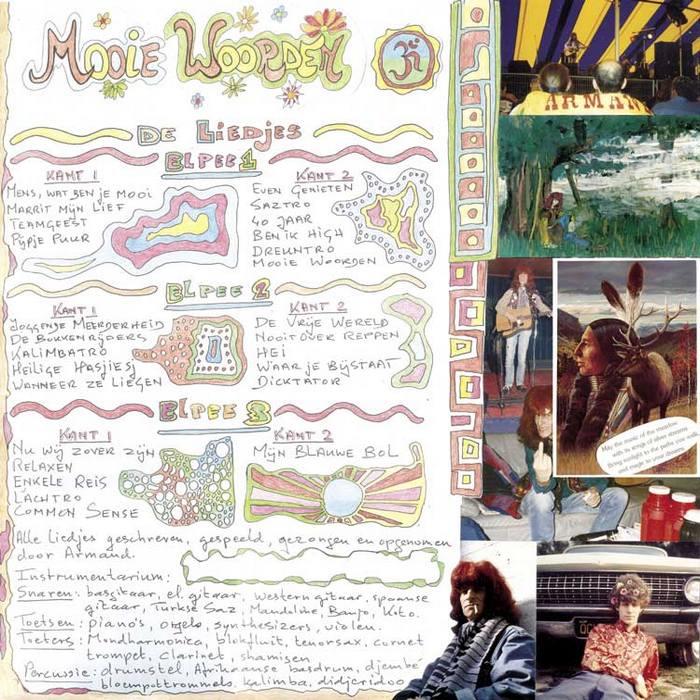 Mooie Woorden
ॐ
De Liedjes
Elpee 1
Kant 1
Mens, wat ben je mooi
Margit mijn Lief
Teamgeest
Pijpje Puur
Kant 2
Even Genieten
Saztro
40 Jaar
Ben ik High
Dreuntro
Mooie Woorden
Elpee 2
Kant 1
Joggende Meerderheid
De Bokkenrijders
Kalimbatro
Heilige Hasjiesj
Wanneer ze Liegen
Kant 2
De Vrije Wereld
Nooit over Reppen
Hei
Waar je Bijstaat
Dicktator
Elpee 3
Kant 1
Nu wij zover zijn
Relaxen
Enkele Reis
Lachtro
Common Sense
Kant 2
Mijn Blauwe Bol
Alle liedjes geschreven, gespeeld, gezongen en opgenomen
door Armand.
Instrumentarium:
Snaren: basgitaar, el. gitaar, western gitaar, spaanse
gitaar, Turkse Saz, Mandoline, Banjo, Koto.
Toetsen: piano's, orgels, synthesizers, violen.
Toeters: Mondharmonica, blokfluit, tenorsax, cornet
trompet, clarinet, shamisen
Percussie: drumstel, Afrikaanse basdrum, djembé
bloempottrommels, kalimba, didjeridoo
ARMAN
May the music of the meadow
with its songs of silver streams
Bring sunlight to the paths you walk
and magic to your dreams.